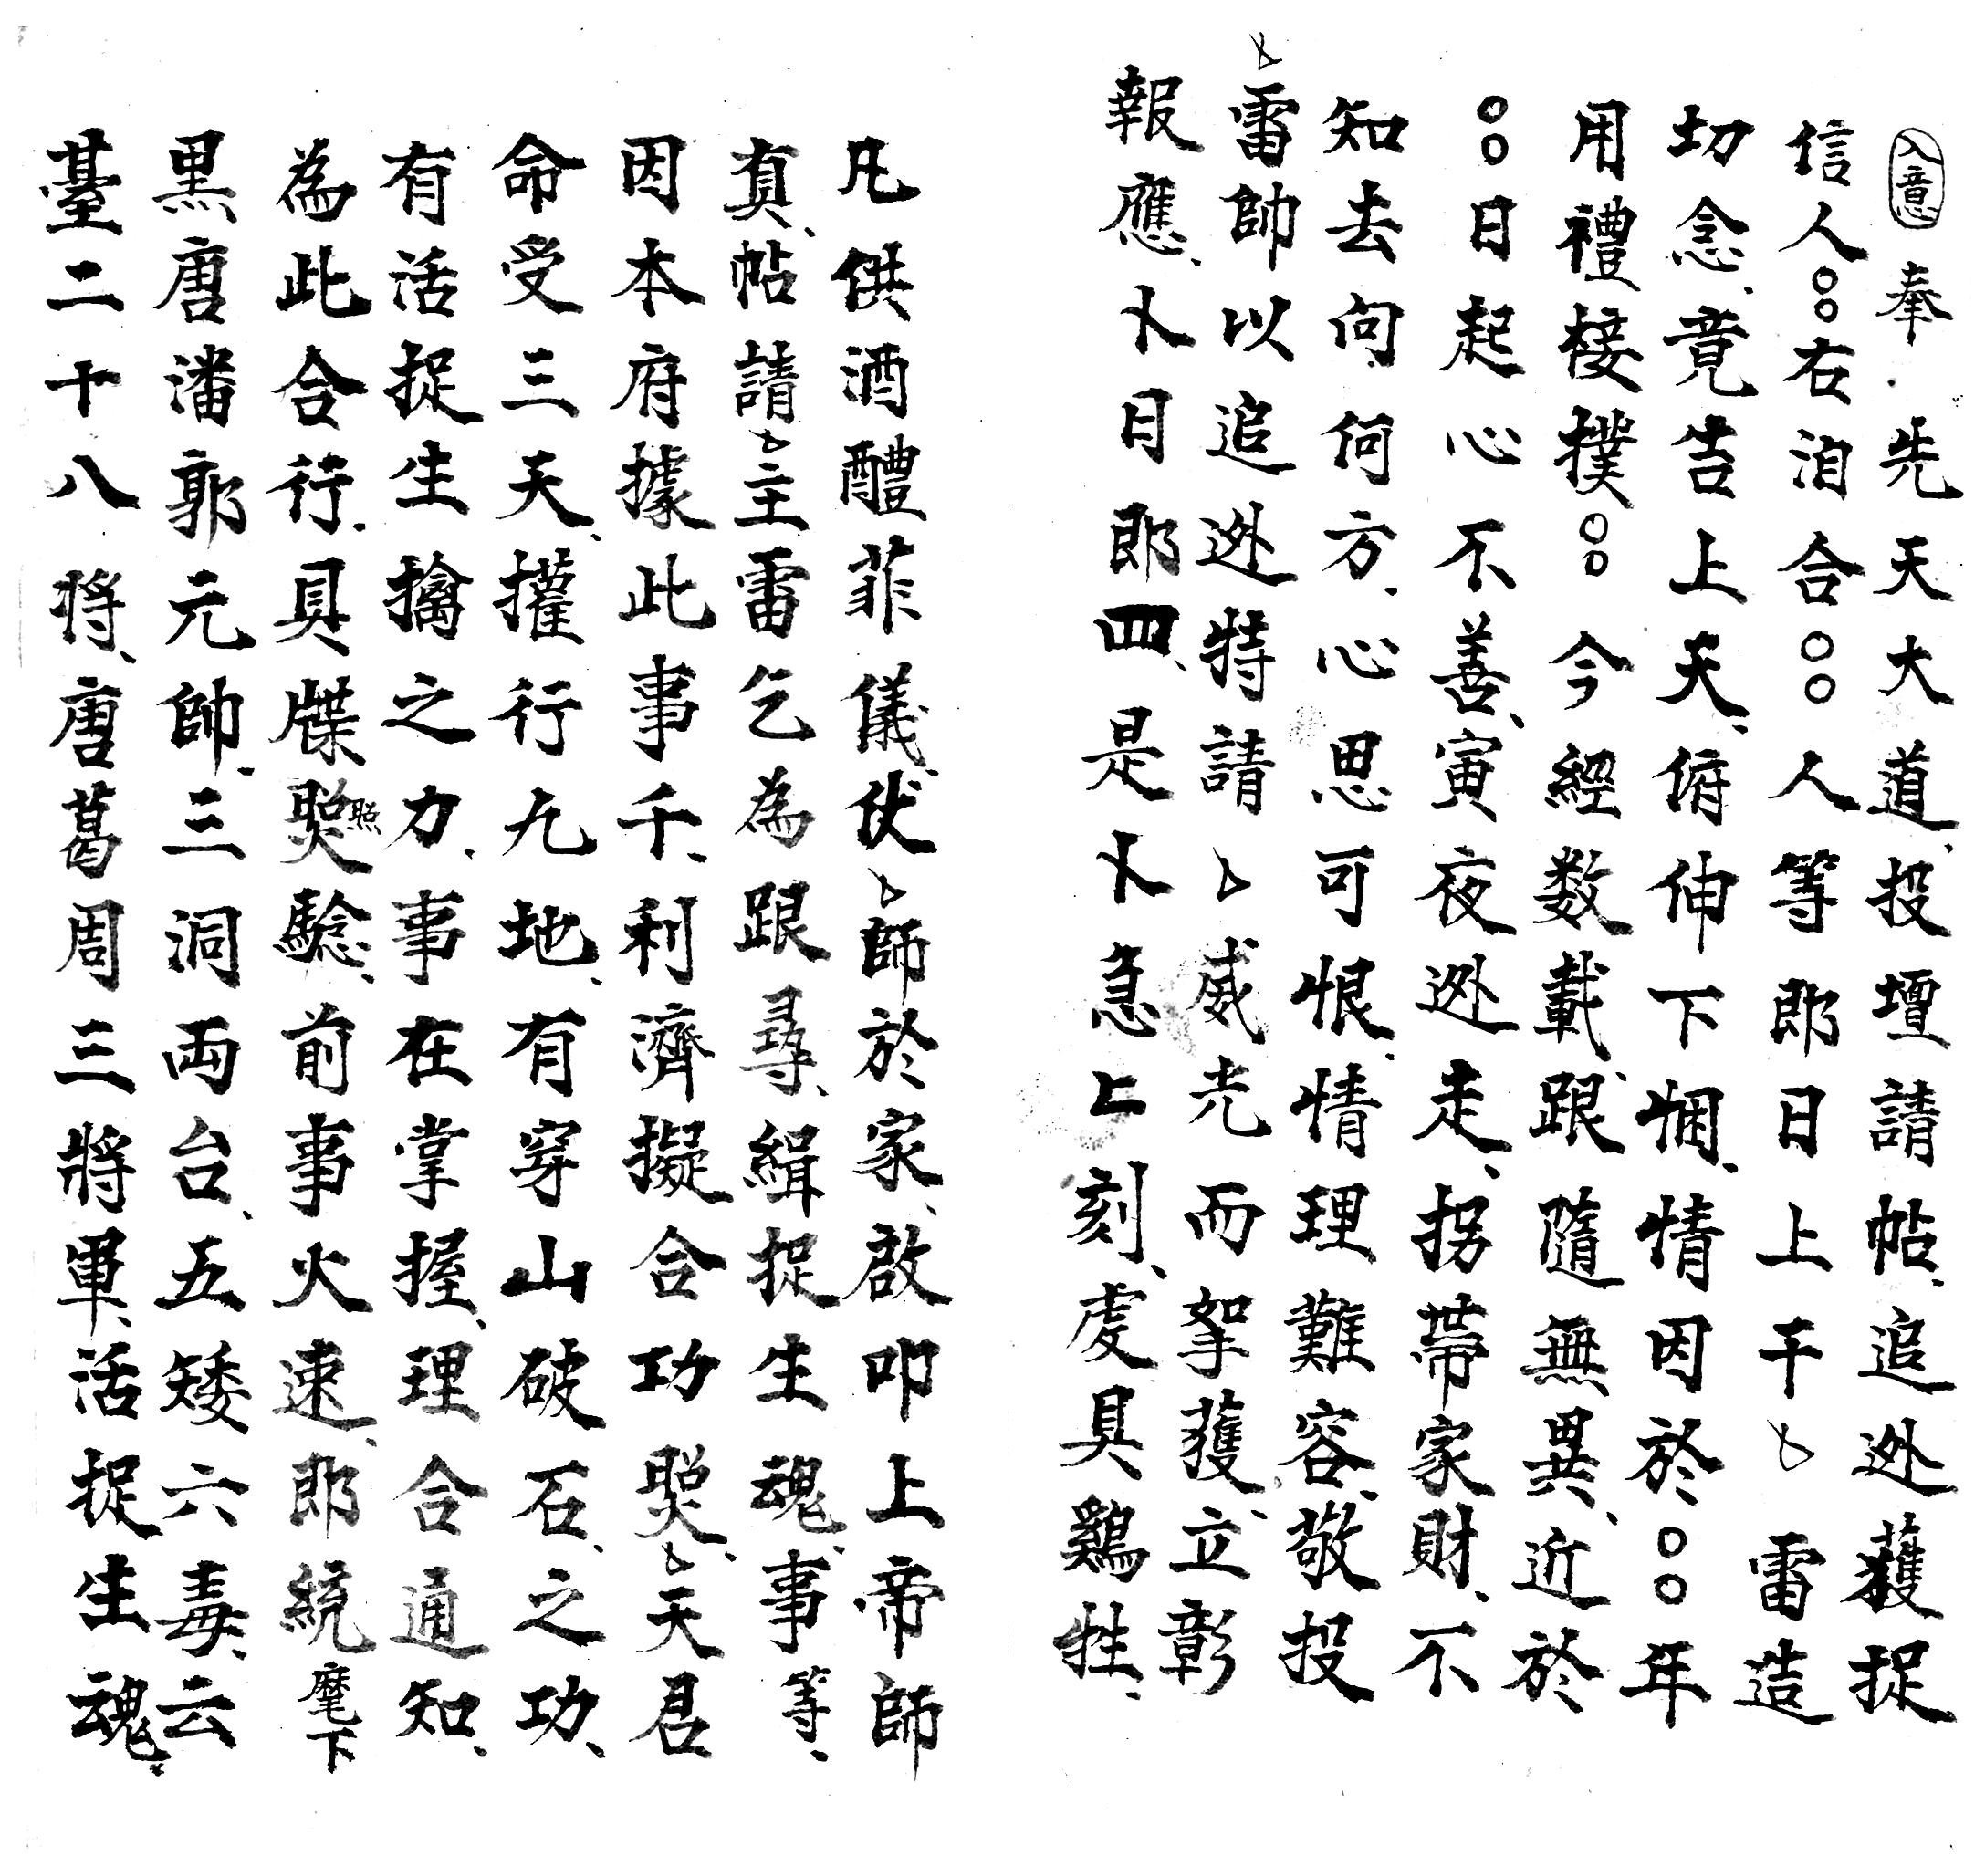 入意 奉 先天大道、投壇請帖、追迯獲捉
信人○○右洎合○○人等郎日上干 雷造
切念、竟告上天、俯伸下悃、情因於○○年
用禮接撲○○今經数載、跟隨無異、近於
○○日起心不善、寅夜迯走、拐帶家財、不
知去向何方、心思可恨、情理難容、敬投
雷帥以追迯特請 威光而拏獲、立彰
報應、卜日郎四、是卜急上刻、虔具鷄牲、
凡供酒醴菲儀、伏 師於家、啟叩上帝師
真、帖請 主雷乞為跟尋、緝捉生魂、事等、
因本府據此事千、利濟擬合功煚、天君
命受三天、權行九地、有穿山破石之功、
有活捉生擒之力、事在掌握、理合通知、
為此合行、具牒煚照驗、前事火速、郎統麾下
黑唐潘郭元帥、三洞両台、五矮六毒、云
臺二十八將、唐葛周三將軍、活捉生魂、